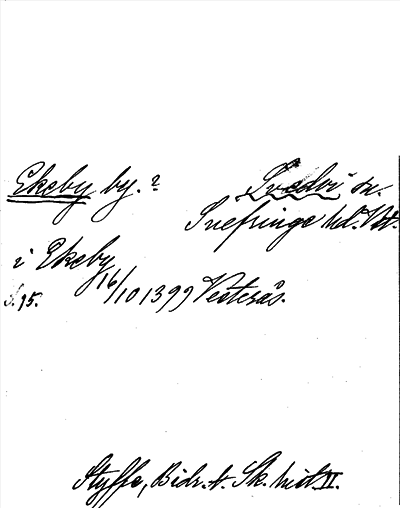 Ekeby by.? Svedvi sn.
Snefringe hd. Vstm.
i Ekeby
S. 95. 16/10 1399 Vesterås.
Styffe, Bidr. t. Sk. hist. II.